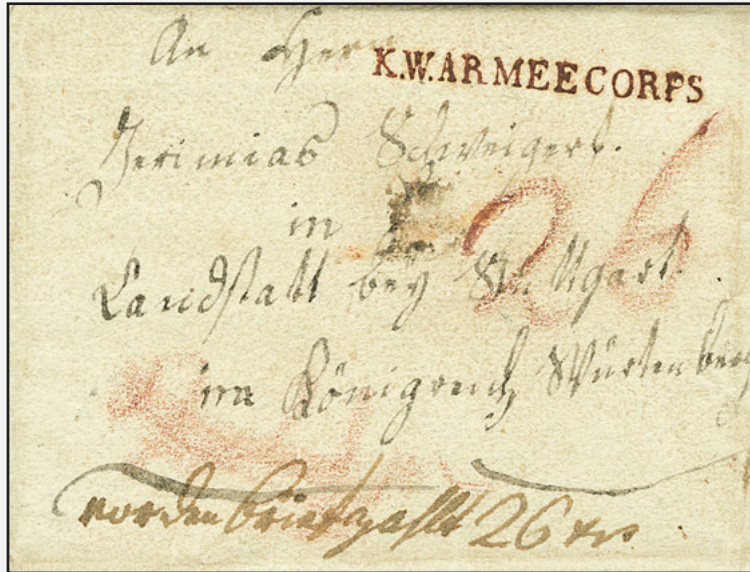 An Herr
K.W.ARMEECORPS
Jerimias Schweigert.
in
26
Landstatt bey Stuttgart.
im Königreich Würtenberg
vor den brief zahlt 26 xrs